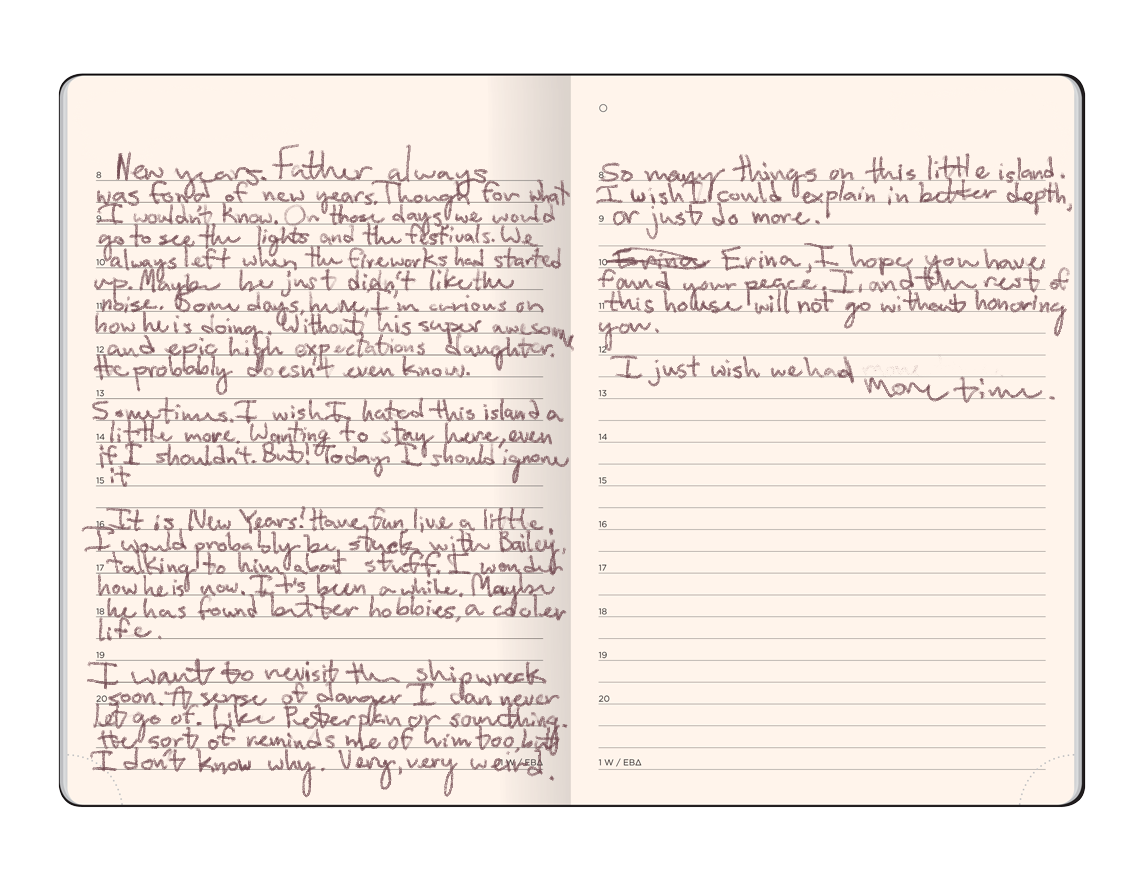 New years. Father always
was fond of new years. Though for what
I wouldn't know. On those days we would
go to see the lights and the festivals. We
always left when the fireworks had started
up. Maybe he just didn't like the
noise. Some days, here, I'm curious on
how he is doing. Without his super awesome
and epic high expectations daughter.
He probbably doesn't even know.
Sometimes. I wish I hated this island a
little more. Wanting to stay here, even
if I shouldn't. But! Today I should ignore
it
It is New Years! Have fun live a little.
I would probably be stuck with Bailey,
talking to him about stuff. I wonder
how he is now. It's been a while. Maybe
he has found better hobbies, a cooler
life.
I want to revisit the shipwreck
soon. A sense of danger I can never
let go of. Like Peterpan or something.
He sort of reminds me of him too, but
I don't know why. Very, very weird.
So many things on this little island.
I wish I could explain in better depth,
or just do more.
Erina, I hope you have
found your peace. I, and the rest of
this house will not go without honoring
you.
I just wish we had
more time.
8
9
10
11
12
13
14
15
16
17
18
19
20
1 W / EBA
8
9
10
11
12
13
14
15
16
17
18
19
20
1 W / EBA